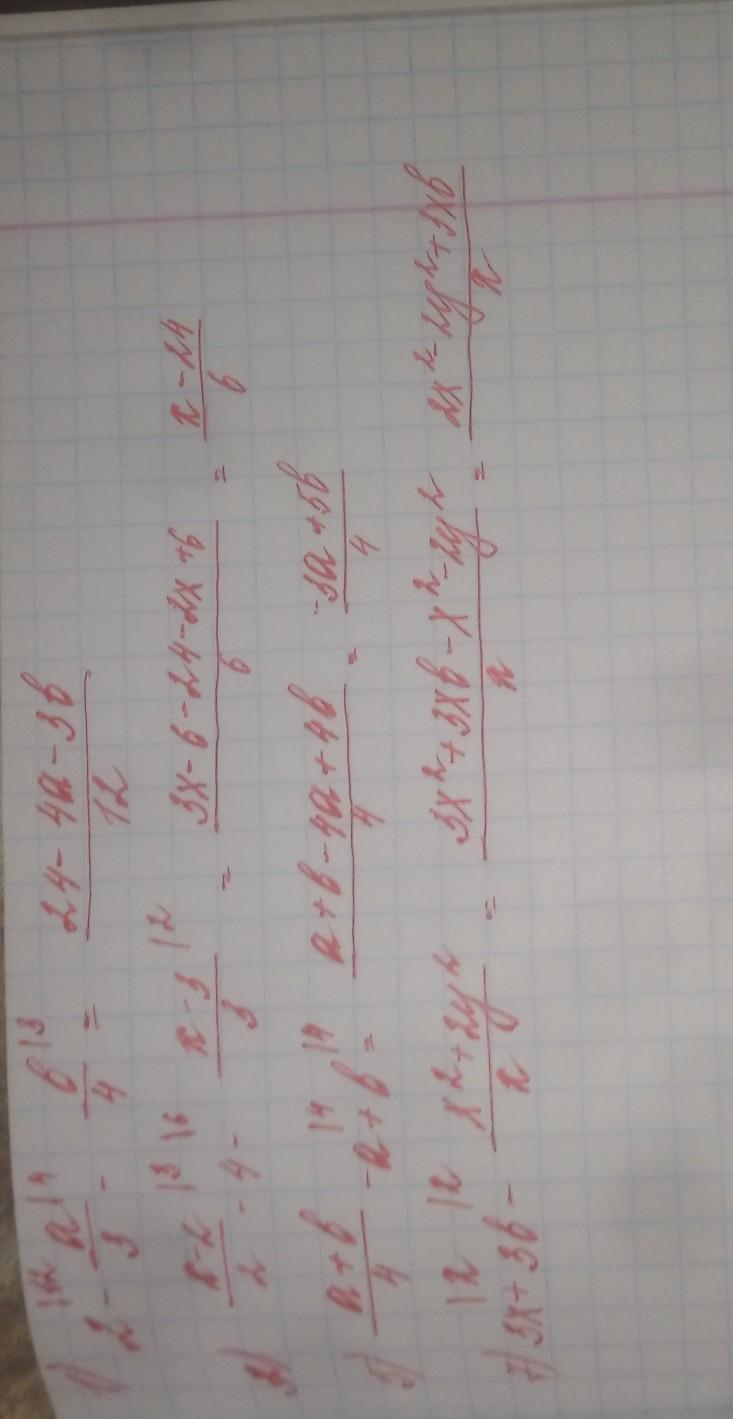 1) 2|12 - a/3|4 - b/4|3 = (24 - 4a - 3b)/12
3) (x-2)/2|3 - 4|6 - (x-3)/3|2 = (3x - 6 - 24 - 2x + 6)/6 = (x - 24)/6
5) (a+b)/4 - a|4 + b|4 = (a + b - 4a + 4b)/4 = (-3a + 5b)/4
7) 3x|x + 3b|x - (x² + 2y²)/x = (3x² + 3xb - x² - 2y²)/x = (2x² - 2y² + 3xb)/x